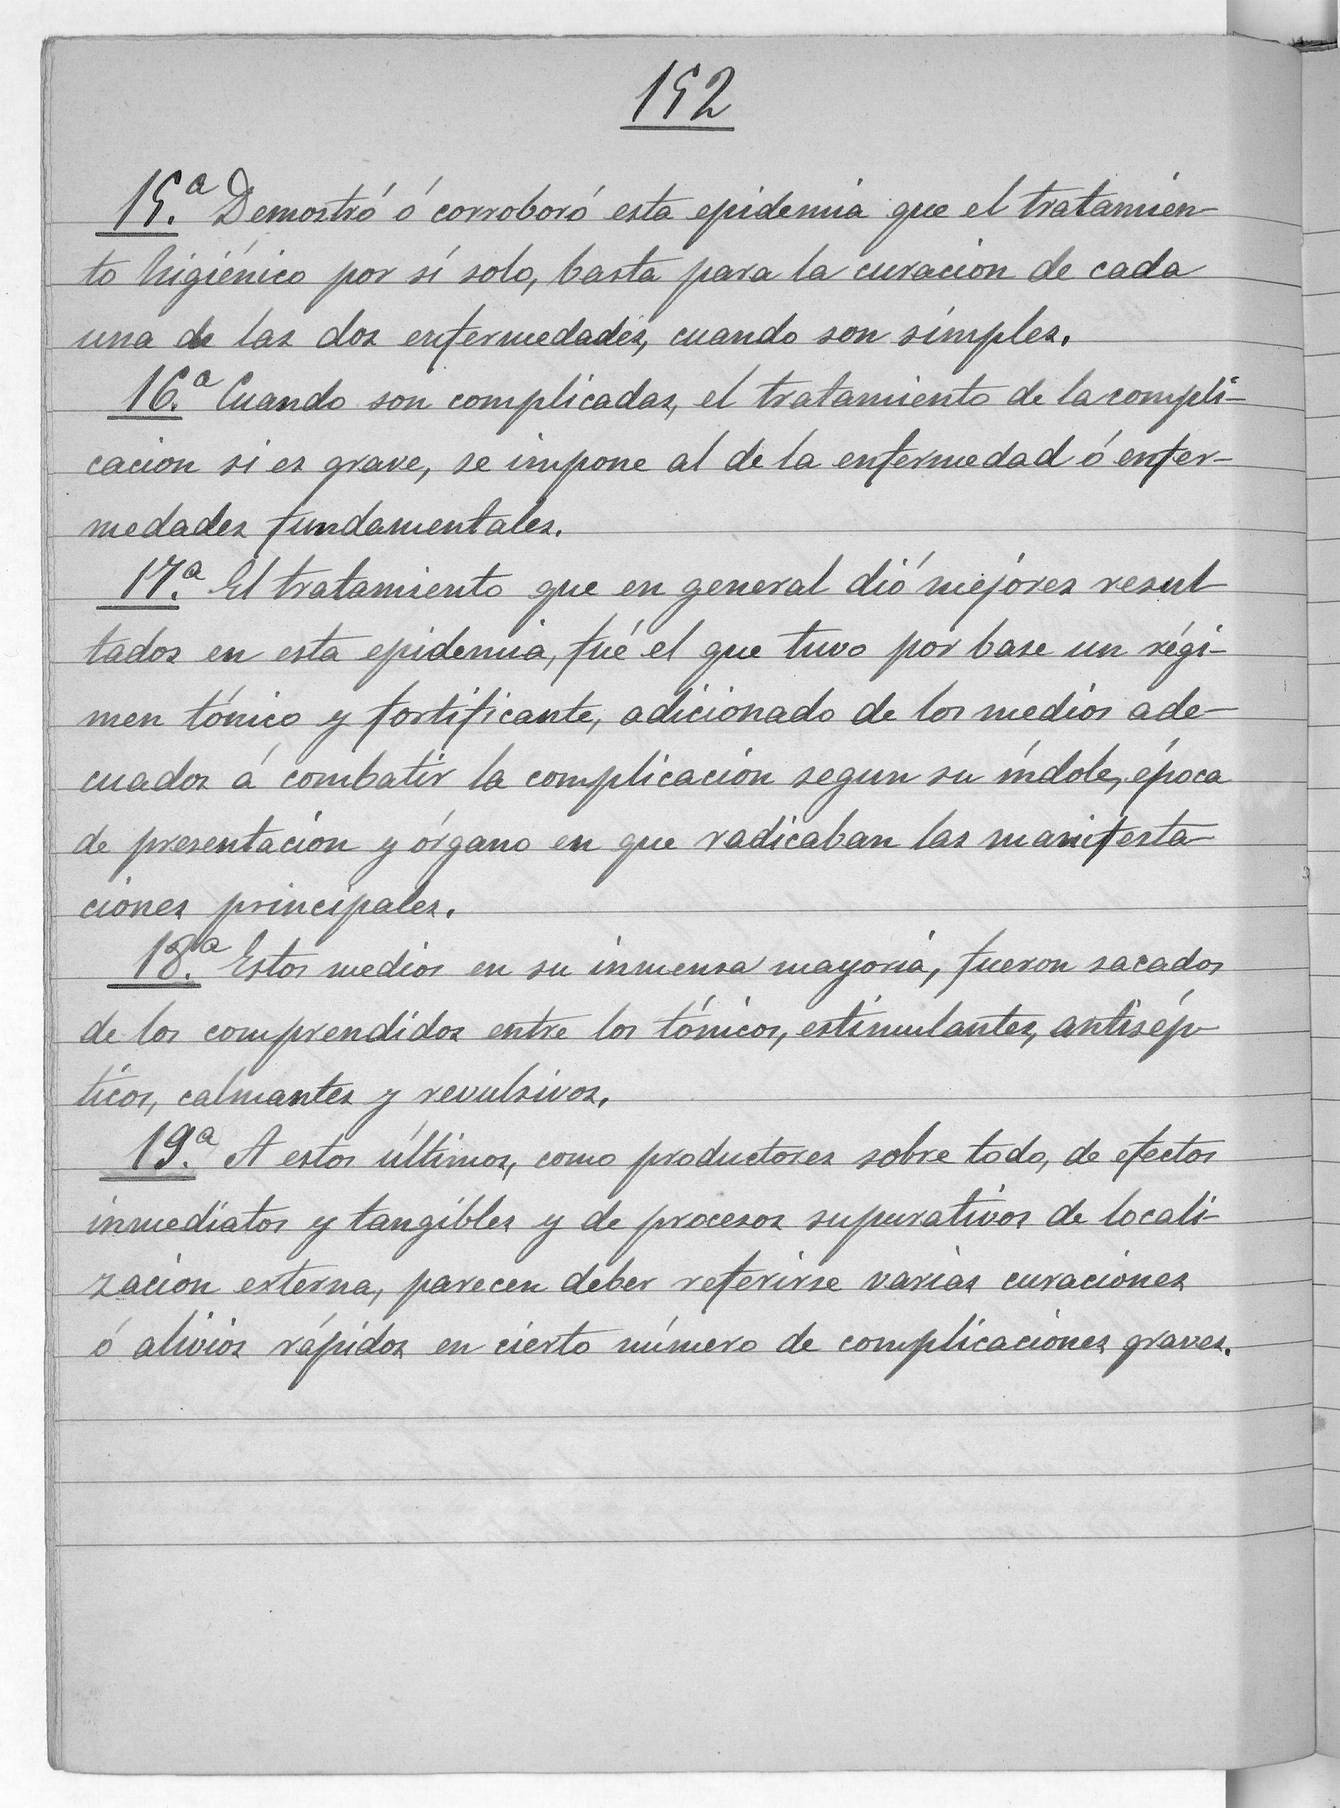 152
15.ª Demostró ó corroboró esta epidemia que el tratamien-
to higiénico por sí solo, basta para la curacion de cada
una de las dos enfermedades, cuando son simples.
16.ª Cuando son complicadas, el tratamiento de la compli-
cacion si es grave, se impone al de la enfermedad ó enfer-
medades fundamentales.
17.ª El tratamiento que en general dió mejores resul-
tados en esta epidemia, fué el que tuvo por base un régi-
men tónico y fortificante, adicionado de los medios ade-
cuados á combatir la complicación segun su índole, época
de presentación y órgano en que radicaban las manifesta-
ciones principales.
18.ª Estos medios en su inmensa mayoria, fueron sacados
de los comprendidos entre los tónicos, estimulantes, antisép-
ticos, calmantes y revulsivos.
19.ª A estos últimos, como productores sobre todo, de efectos
inmediatos y tangibles y de procesos supurativos de locali-
zacion externa, parecen deber referirse varias curaciones
ó alivios rápidos en cierto número de complicaciones graves.